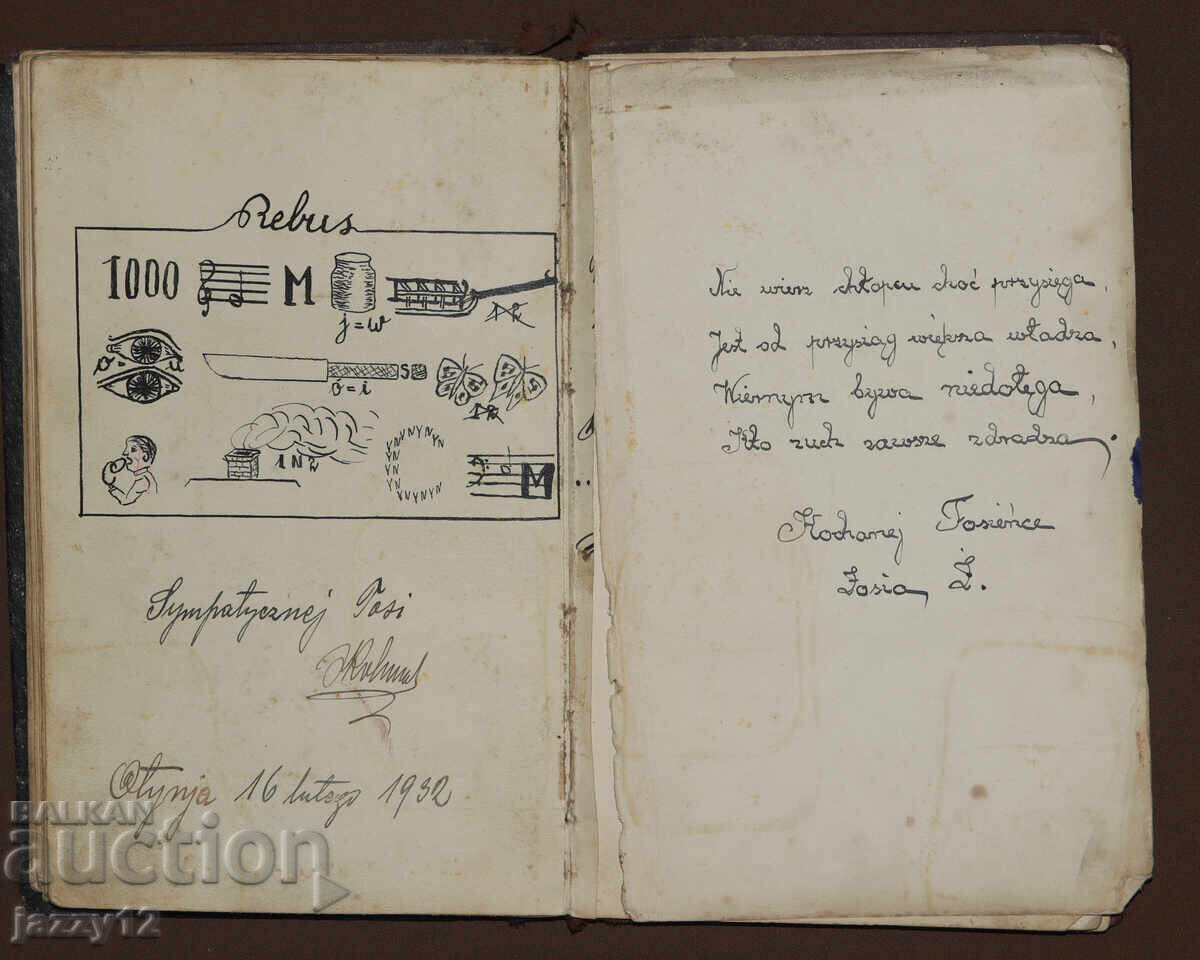 Rebus
1000 M
j=w 1 2
a u o=i S
1 2
1 N 2 YNYNYNYNYNYNYNYN M
Sympatycznej Tosi
Otynja 16 lutego 1932
Nie wierz chłopcu choć przysięga,
Jest od przysiąg większa władza,
Wiernym bywa niedołęga,
Kto zuch zawsze zdradza.
Kochanej Tosieńce
Zosia Ż.
BALKAN
auction
jazzy12